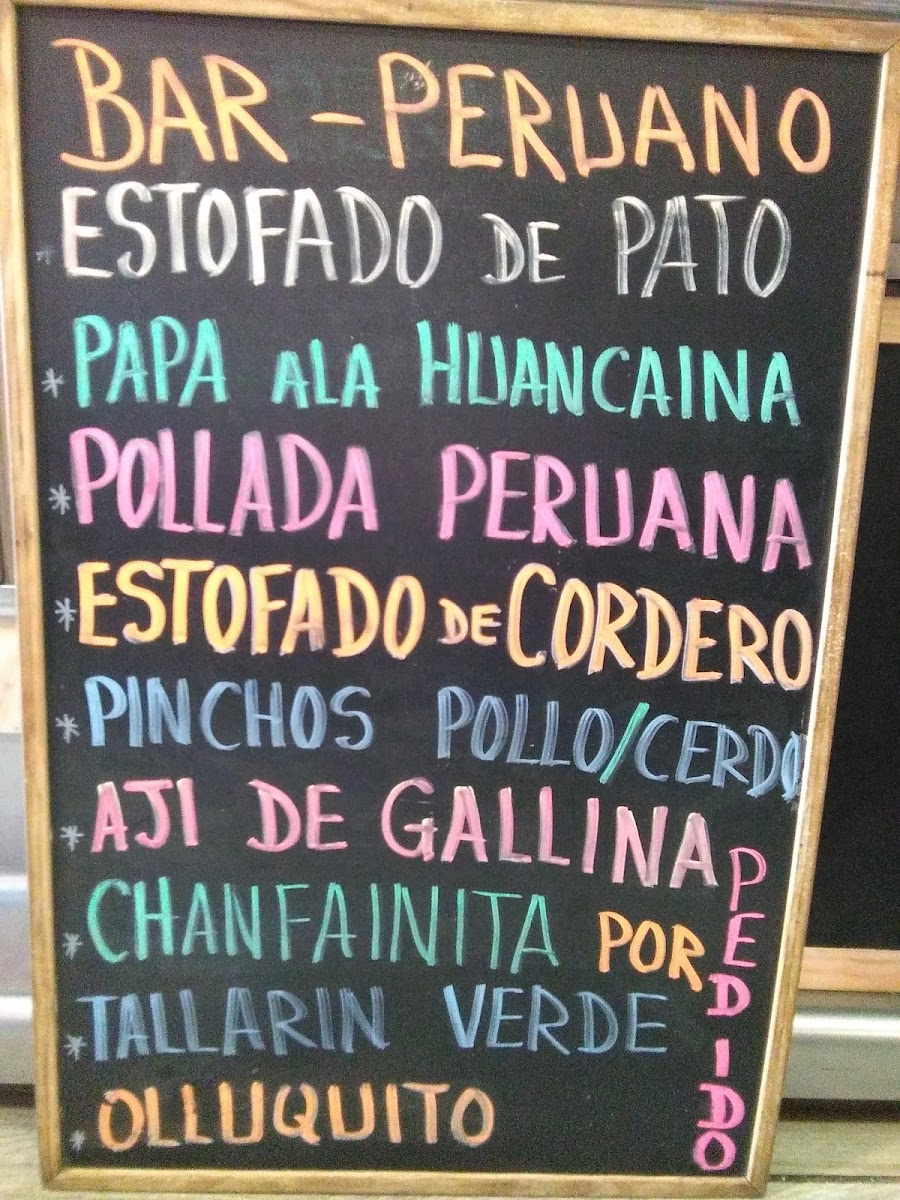 BAR - PERUANO
* ESTOFADO DE PATO
* PAPA ALA HUANCAINA
* POLLADA PERUANA
* ESTOFADO DE CORDERO
* PINCHOS POLLO/CERDO
* AJI DE GALLINA
* CHANFAINITA POR PEDIDO
* TALLARIN VERDE
* OLLUQUITO